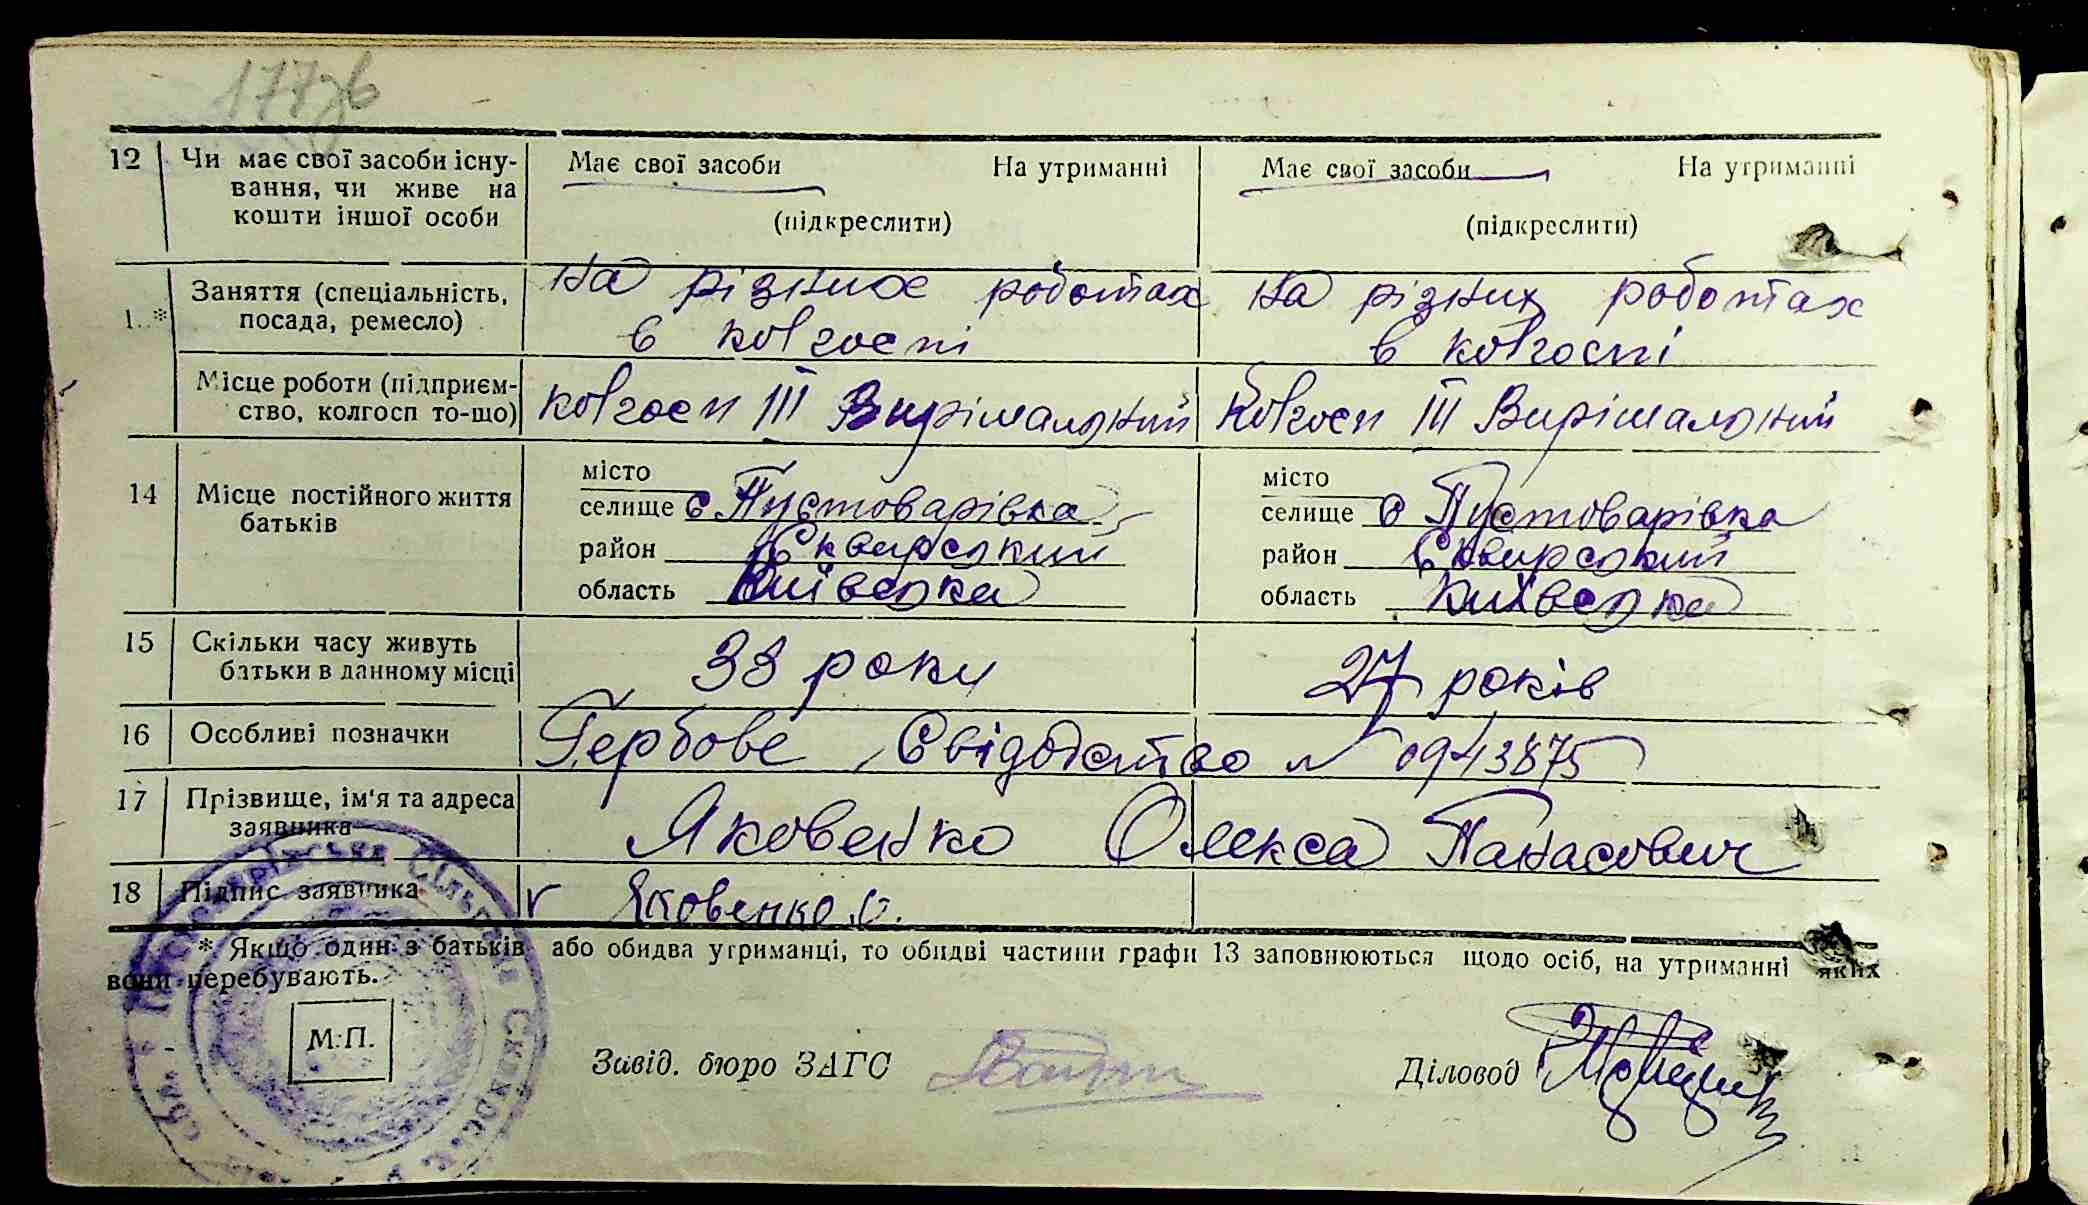 177зв
12 Чи має свої засоби існу- Має свої засоби На утриманні Має свої засоби На утриманні
вання, чи живе на
кошти іншої особи (підкреслити) (підкреслити)
1..* Заняття (спеціальність, на різних роботах на різних роботах
посада, ремесло) в колгоспі в колгоспі
Місце роботи (підприєм- колгосп III Вирішальний Колгосп III Вирішальний
ство, колгосп то-що)
14 Місце постійного життя місто місто
батьків селище с Пустоварівка селище с Пустоварівка
район Сквирський район Сквирський
область Київська область Київська
15 Скільки часу живуть 33 роки 27 років
батьки в данному місці
16 Особливі позначки Гербове Свідоство № 0943875
17 Прізвище, ім'я та адреса Яковенко Олекса Панасович
заявника
18 Підпис заявника v Яковенко.О.
* Якщо один з батьків або обидва утриманці, то обидві частини графи 13 заповнюються щодо осіб, на утриманні яких
вони перебувають.
М.П.
Завід. бюро ЗАГС Діловод